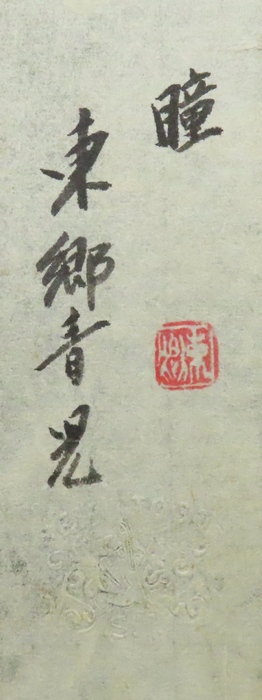 瞳
東郷青児